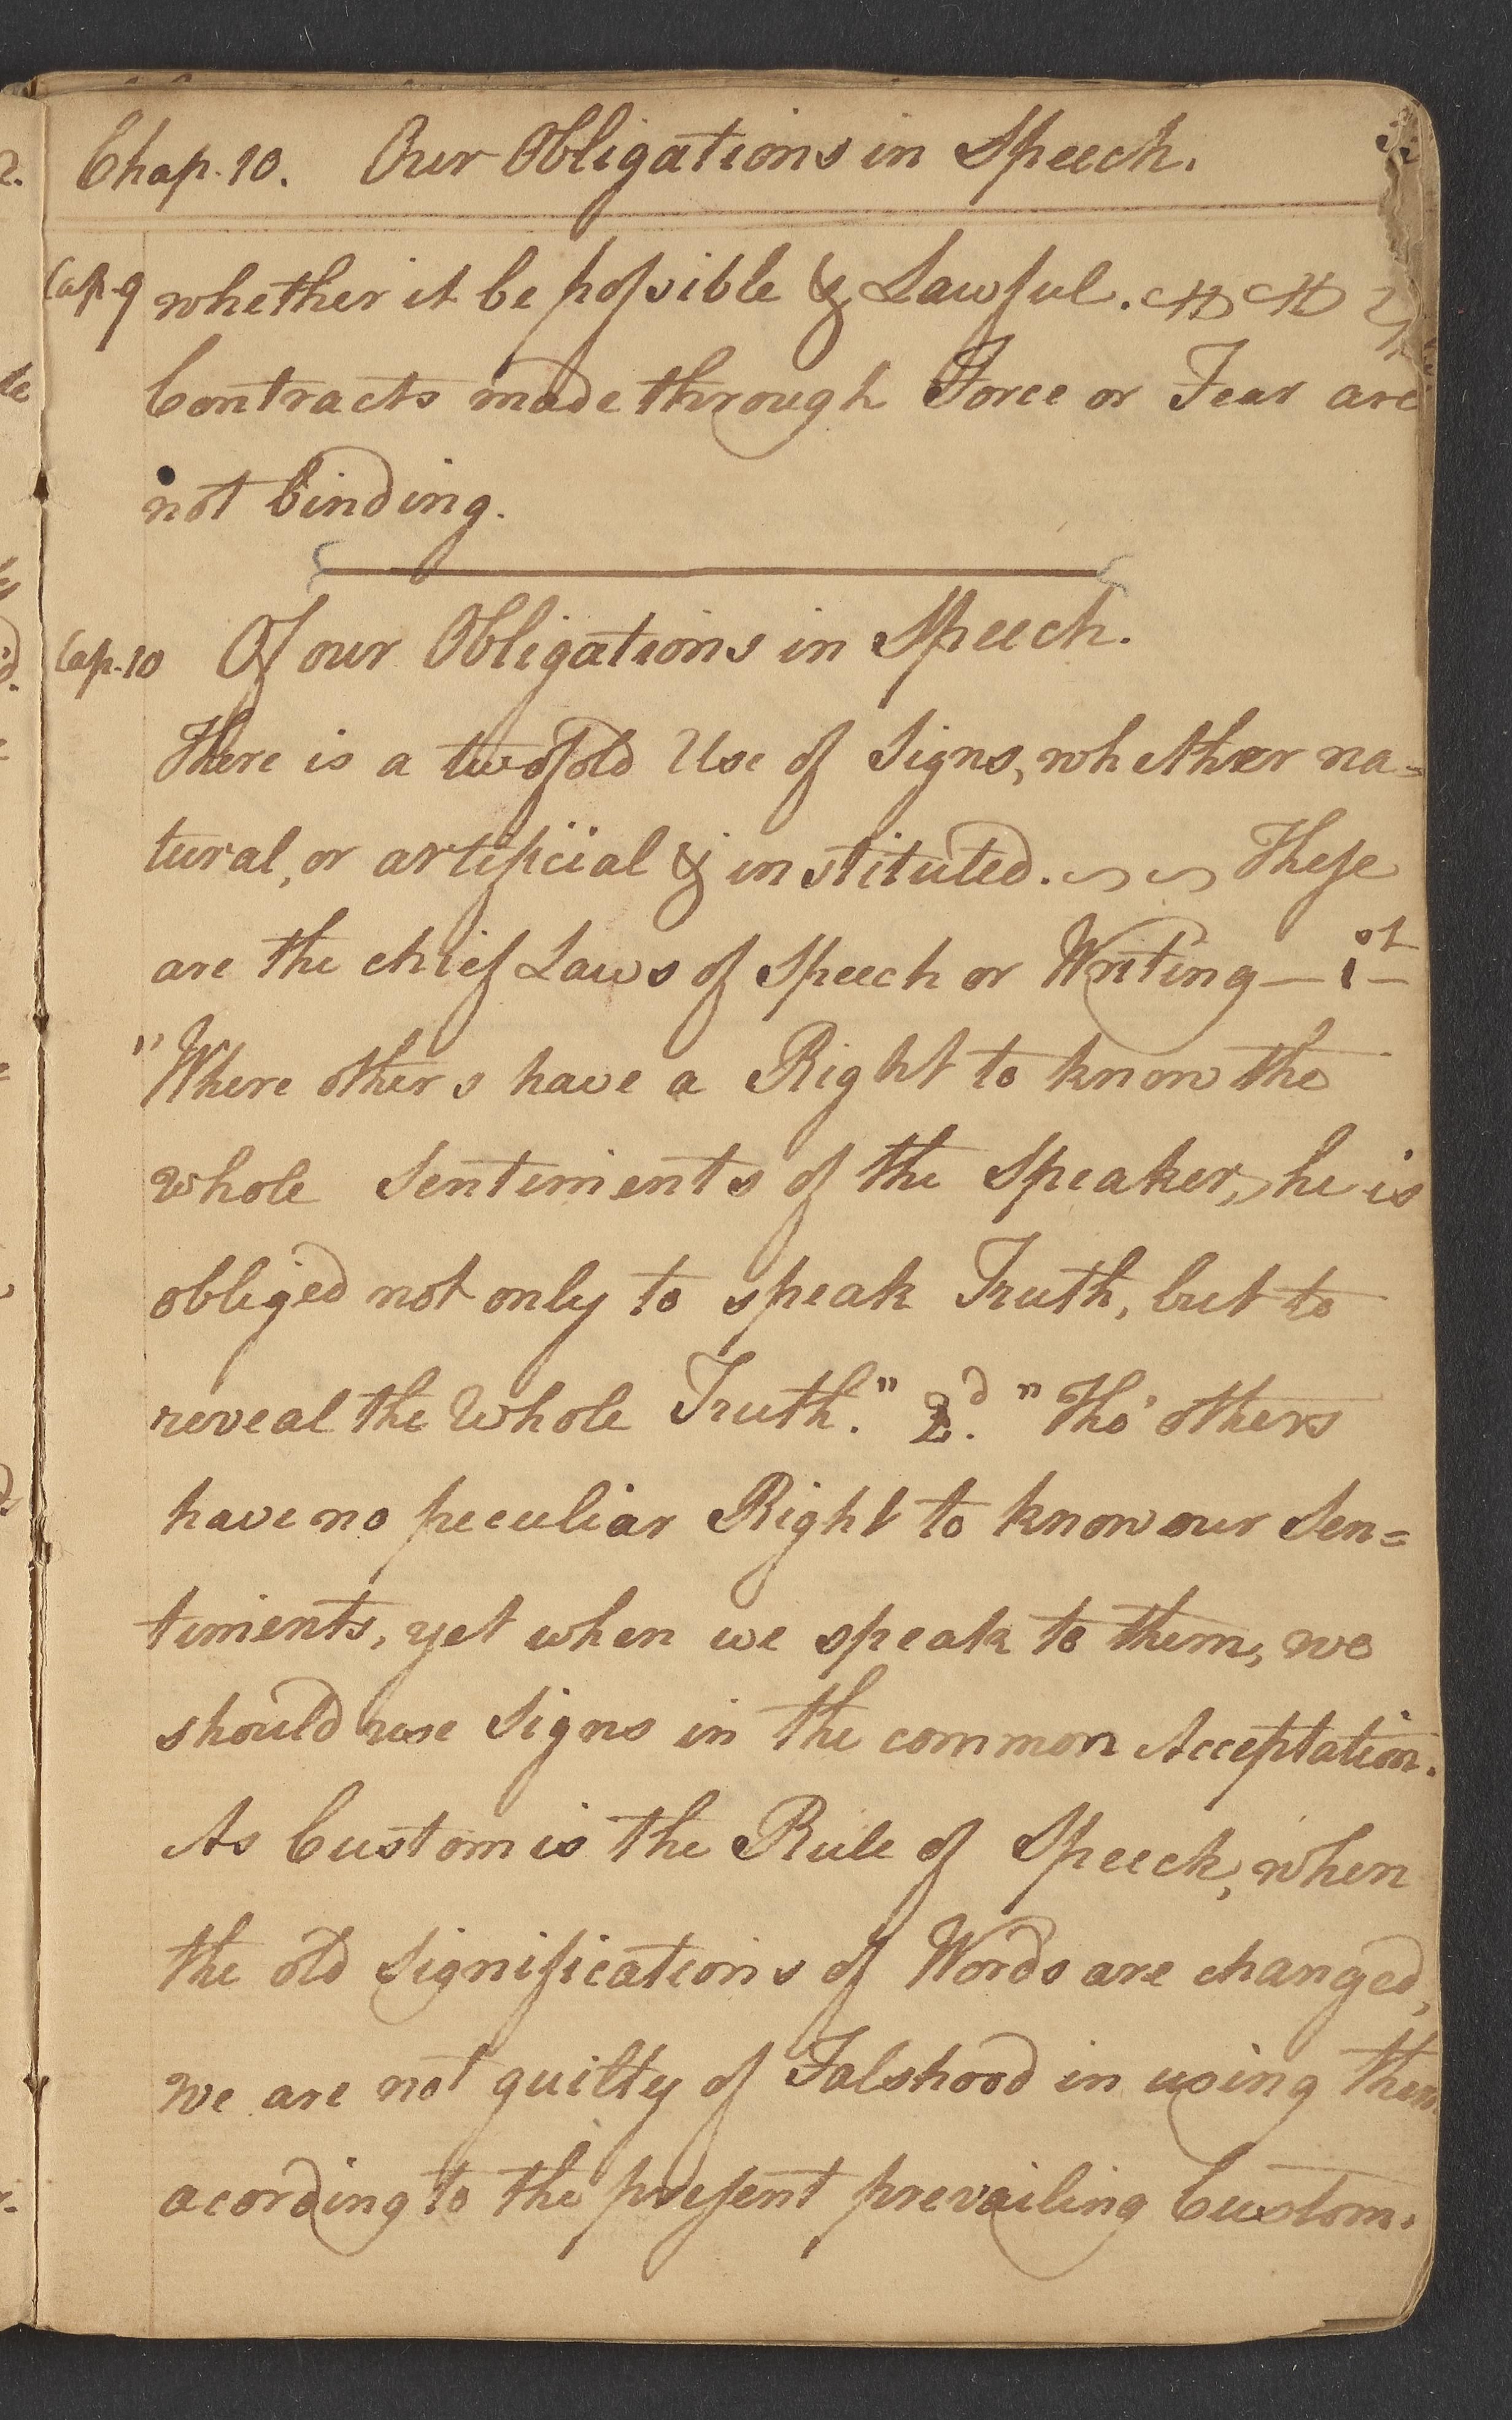 Chap. 10. Our Obligations in Speech.
Cap. 9 whether it be poſsible & Lawful.
Contracts made through Force or Fear are
not binding.
Cap. 10 Of our Obligations in Speech.
There is a twofold Use of Signs, whether na=
tural, or artificial & instituted. Theſe
are the chief Laws of Speech or Writing — 1st —
"Where others have a Right to know the
whole Sentiments of the Speaker, he is
obliged not only to speak Truth, but to
reveal the Whole Truth." 2d. "Tho' others
have no peculiar Right to know our Sen=
timents, yet when we speak to them, we
should use Signs in the common Acceptation.
As Custom is the Rule of Speech, when
the old Significations of Words are changed,
we are not guilty of Falshood in using them
acording to the preſent prevailing Custom.